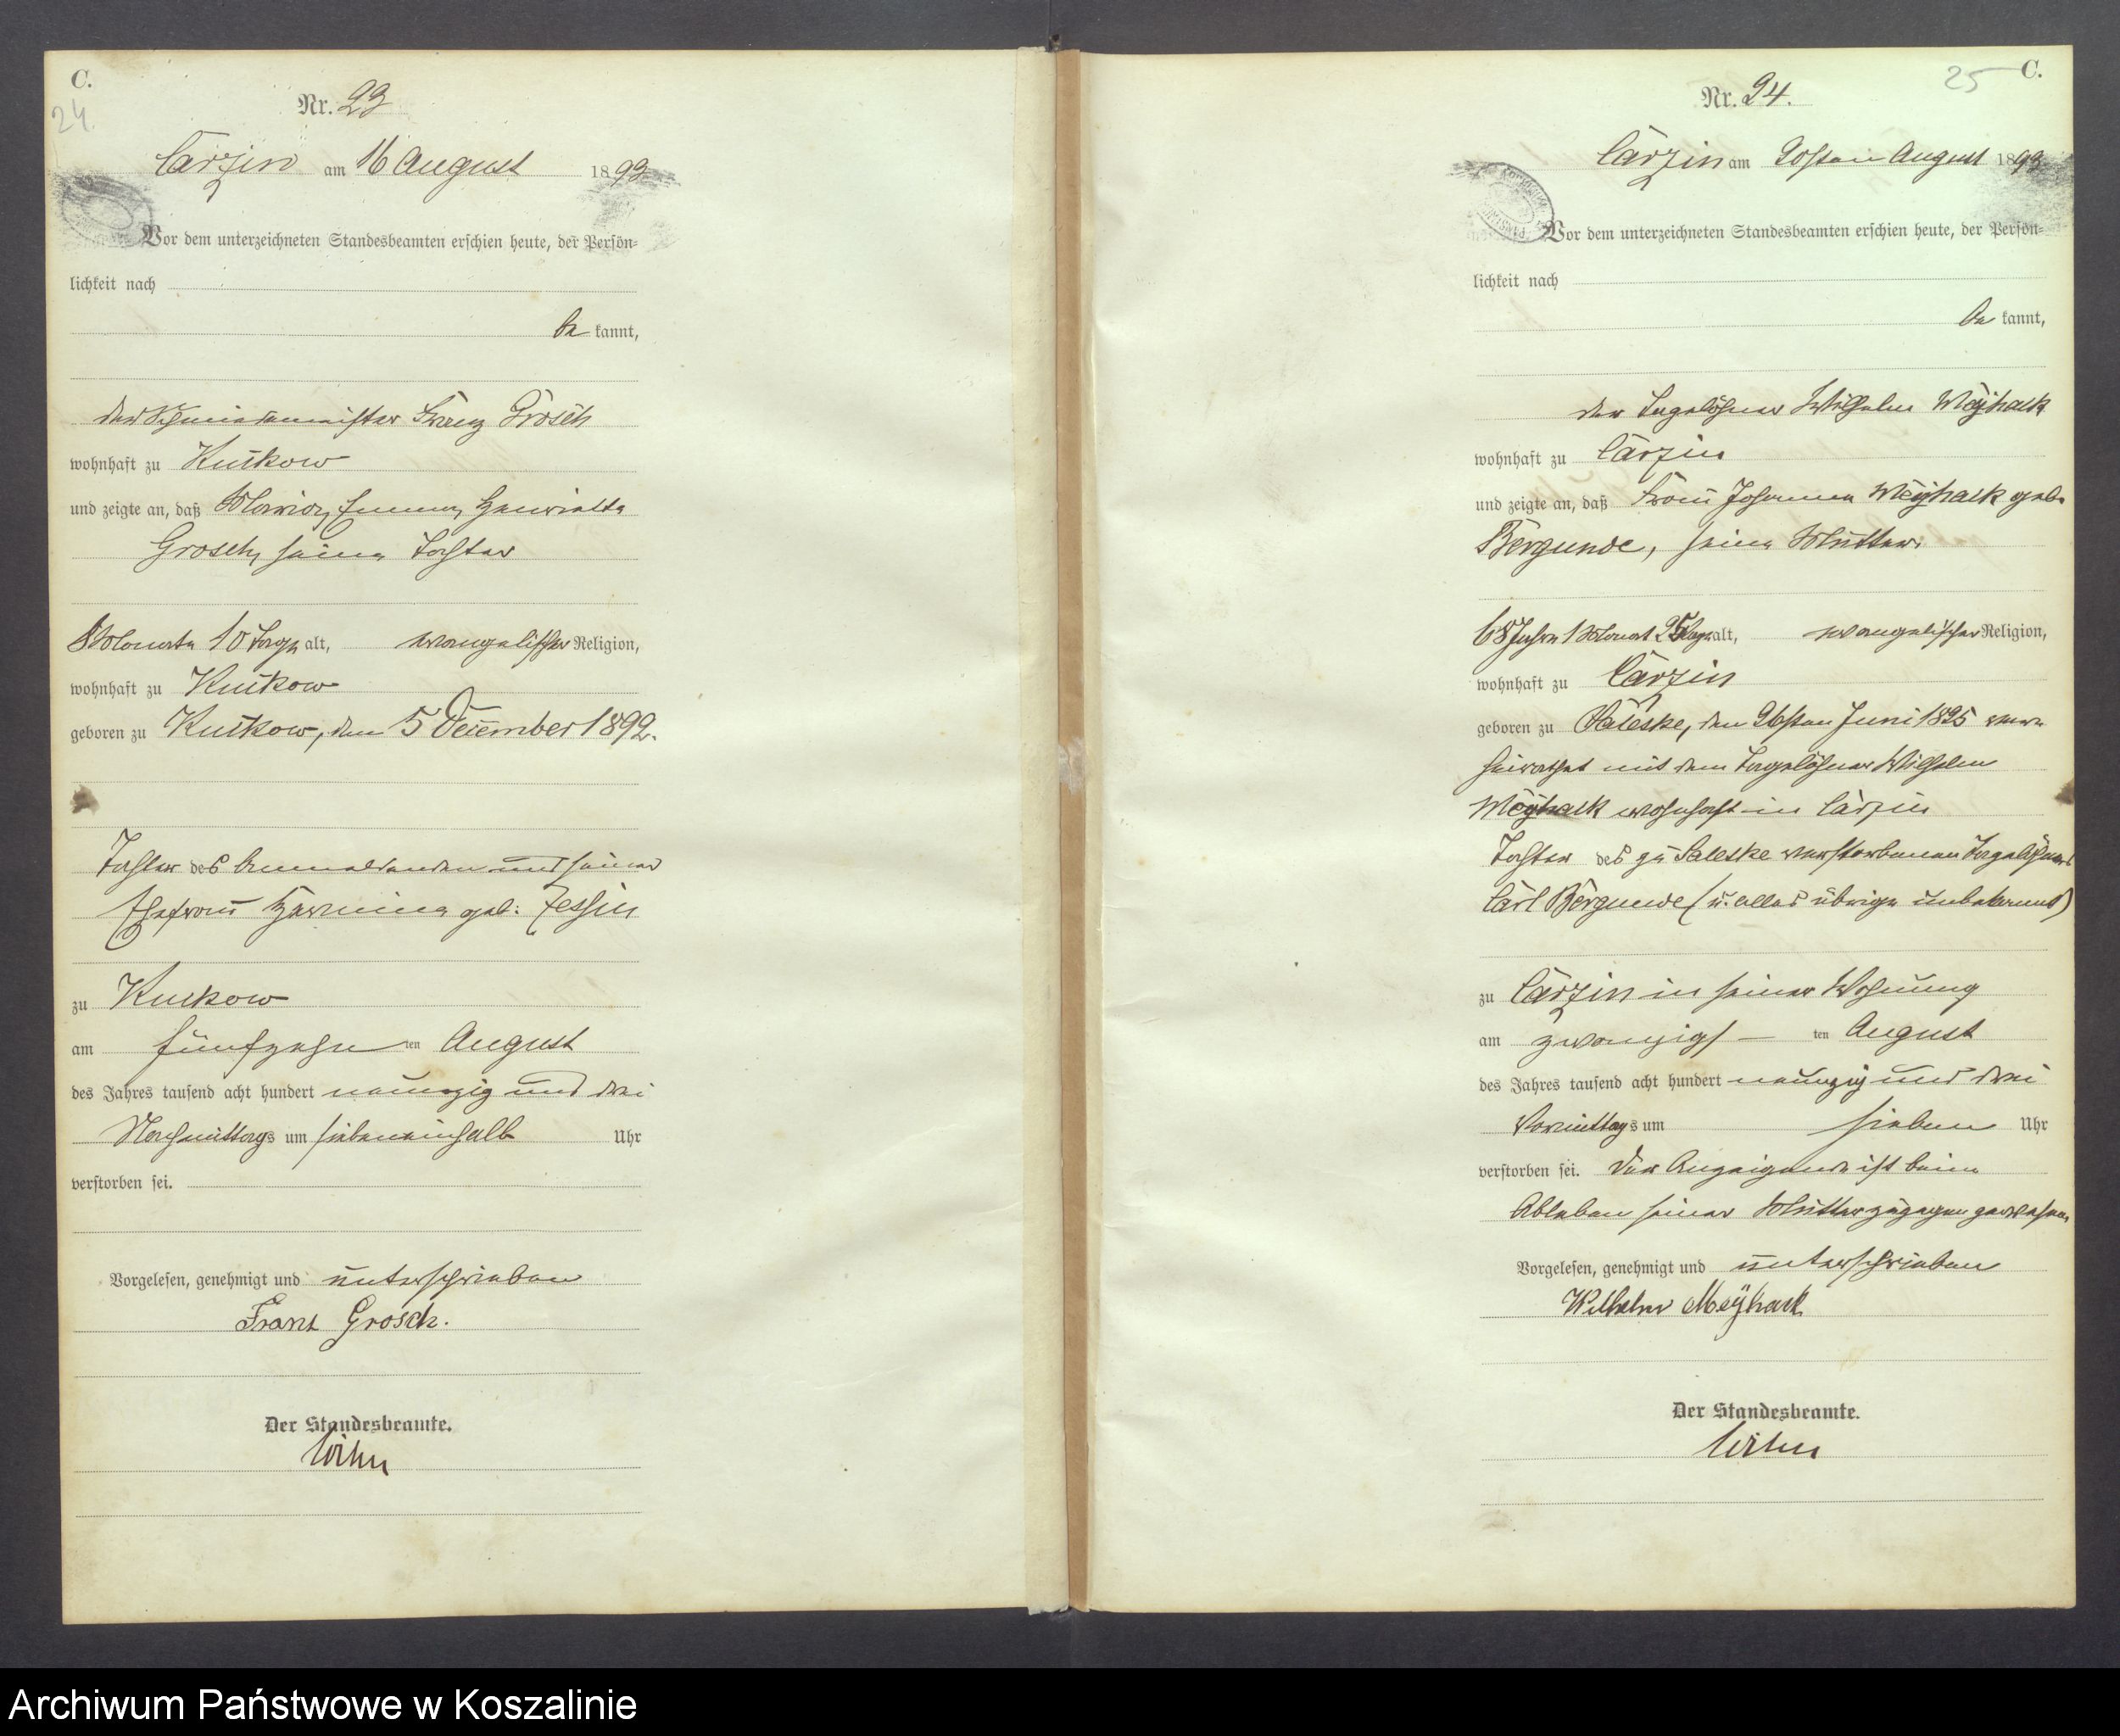 C.
24.
Nr. 23
Carzin am 16 August 1893
Vor dem unterzeichneten Standesbeamten erschien heute, der Persön=
lichkeit nach
be kannt,
der Schmiedemeister Franz Grosch
wohnhaft zu Kukow
und zeigte an, daß Maria, Emma, Henriette
Grosch, seine Tochter
8 Monate 10 Tage alt, evangelischer Religion,
wohnhaft zu Kukow
geboren zu Kukow, den 5 December 1892.
Tochter des Anmeldenden und seiner
Ehefrau Hermine geb: Zessin
zu Kukow
am fünfzehn ten August
des Jahres tausend acht hundert neunzig und drei
Nachmittags um siebeneinhalb Uhr
verstorben sei.
Vorgelesen, genehmigt und unterschrieben
Franz Grosch.
Der Standesbeamte.
25
C.
Nr. 24.
Carzin am 20sten August 1893
Vor dem unterzeichneten Standesbeamten erschien heute, der Persön=
lichkeit nach
be kannt,
der Tagelöhner Wilhelm Meÿhack
wohnhaft zu Carzin
und zeigte an, daß Frau Johanna Meÿhack geb.
Bergunde, seine Mutter,
68 Jahre 1 Monat 25 Tage alt, evangelischer Religion,
wohnhaft zu Carzin
geboren zu Saleske, den 26sten Juni 1825 ver=
heirathet mit dem Tagelöhner Wilhelm
Meÿhack wohnhaft in Carzin
Tochter des zu Saleske verstorbenen Tagelöhners
Carl Bergunde (u. alles übrige unbekannt)
zu Carzin in seiner Wohnung
am zwanzigs ten August
des Jahres tausend acht hundert neunzig und drei
Vormittags um sieben Uhr
verstorben sei. Der Anzeigende ist beim
Ableben seiner Mutter zugegen gewesen,
Vorgelesen, genehmigt und unterschrieben
Wilhelm Meÿhack
Der Standesbeamte.
Archiwum Państwowe w Koszalinie